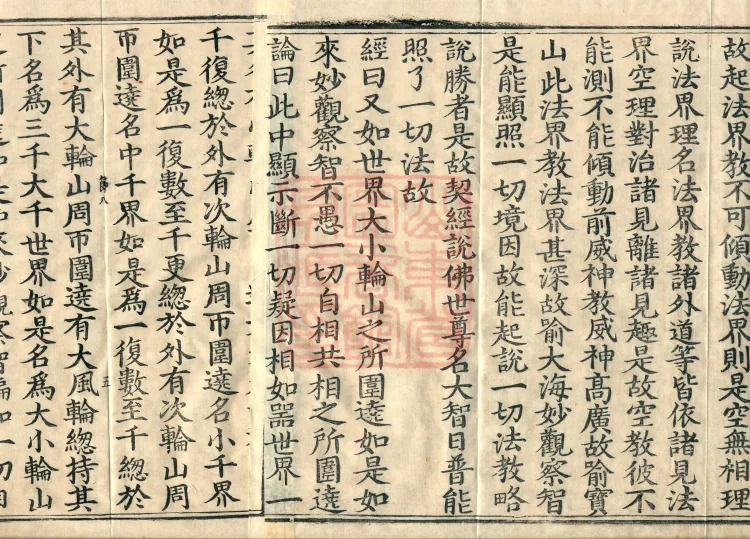 故起法界教不可傾動法界則是空無相理
說法界理名法界教諸外道等皆依諸見法
界空理對治諸見離諸見趣是故空教彼不
能測不能傾動前威神教威神高廣故喻寶
山此法界教法界甚深故喻大海妙觀察智
是能顯照一切境因故能起說一切法教略
說勝者是故契經說佛世尊名大智日普能
照了一切法故
經曰又如世界大小輪山之所圍遶如是如
來妙觀察智不愚一切自相共相之所圍遶
論曰此中顯示斷一切疑因相如器世界一
千復總於外有次輪山周帀圍遶名小千界
如是為一復數至千更總於外有次輪山周
帀圍遶名中千界如是為一復數至千總於
第八
五
其外有大輪山周帀圍遶有大風輪總持其
下名為三千大千世界如是名為大小輪山